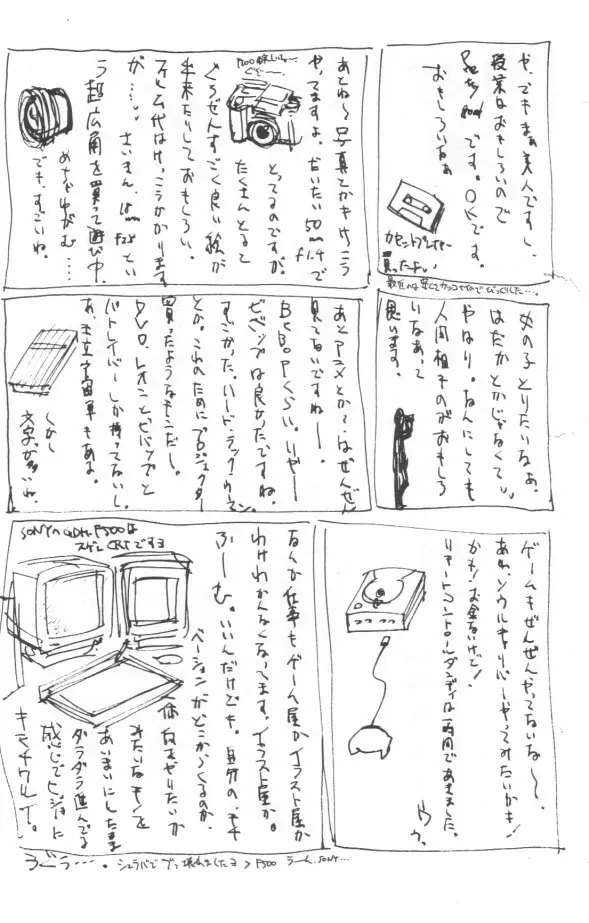 や、でもまあ美人ですし、
授業はおもしろいので
です。OKです。
おもしろいなぁ
カセットプレイヤー
買ったよぃ
最近のは安くてカッコイイのでびっくりした…。
あとね〜写真とかもけっこう
やってますよ。だいたい50mm f1.4で
とってるのですが、
たくさんとると
ぐうぜんすごく良い絵が
出来たりしておもしろい。
フィルム代はけっこうかかります
が……。さいきん、18mm f2.8とい
う超広角を買って遊び中。
めちゃゆがむ……
でも、すごいね。
女の子とりたいなぁ。
はだかとかじゃなくて。
やはり。なんにしても
人間相手のがおもしろ
いなあって
思います。
あとアニメとか?はぜんぜん
見てないですねー。
BEBOPくらい。いやー
ビバップは良かったですね。
すごかった。ハード・ラック・ウーマン
とか。これのためにプロジェクター
買ったようなモンだし。
DVD、レオンとビバップと
パトレイバーしか持ってないし。
あ、王立宇宙軍もあるよ。
しかし
文字が多いね。
ゲームもぜんぜんやってないな〜。
あ、ソウルキャリバーやってみたいかも!
かも!お金ないけど!
リモートコントロールダンディは一時間であきました。
ウウ。
SONYのGDM-F500は
スゲーCRTですヨ
なんか仕事もゲーム屋かイラスト屋か
わけわかんなくなってます。イラスト屋か。
ふーむ。いいんだけども。自分の、モチ
ベーションがどこからくるのか、
何をやりたいか
みたいなモノを
あいまいにしたまま
ダラダラ進んでる
感じでヒジョーに
キモチワルイ。
うぐぅ…。
シュラバでブッ壊れましたヨ>F500 うーん、SONY…